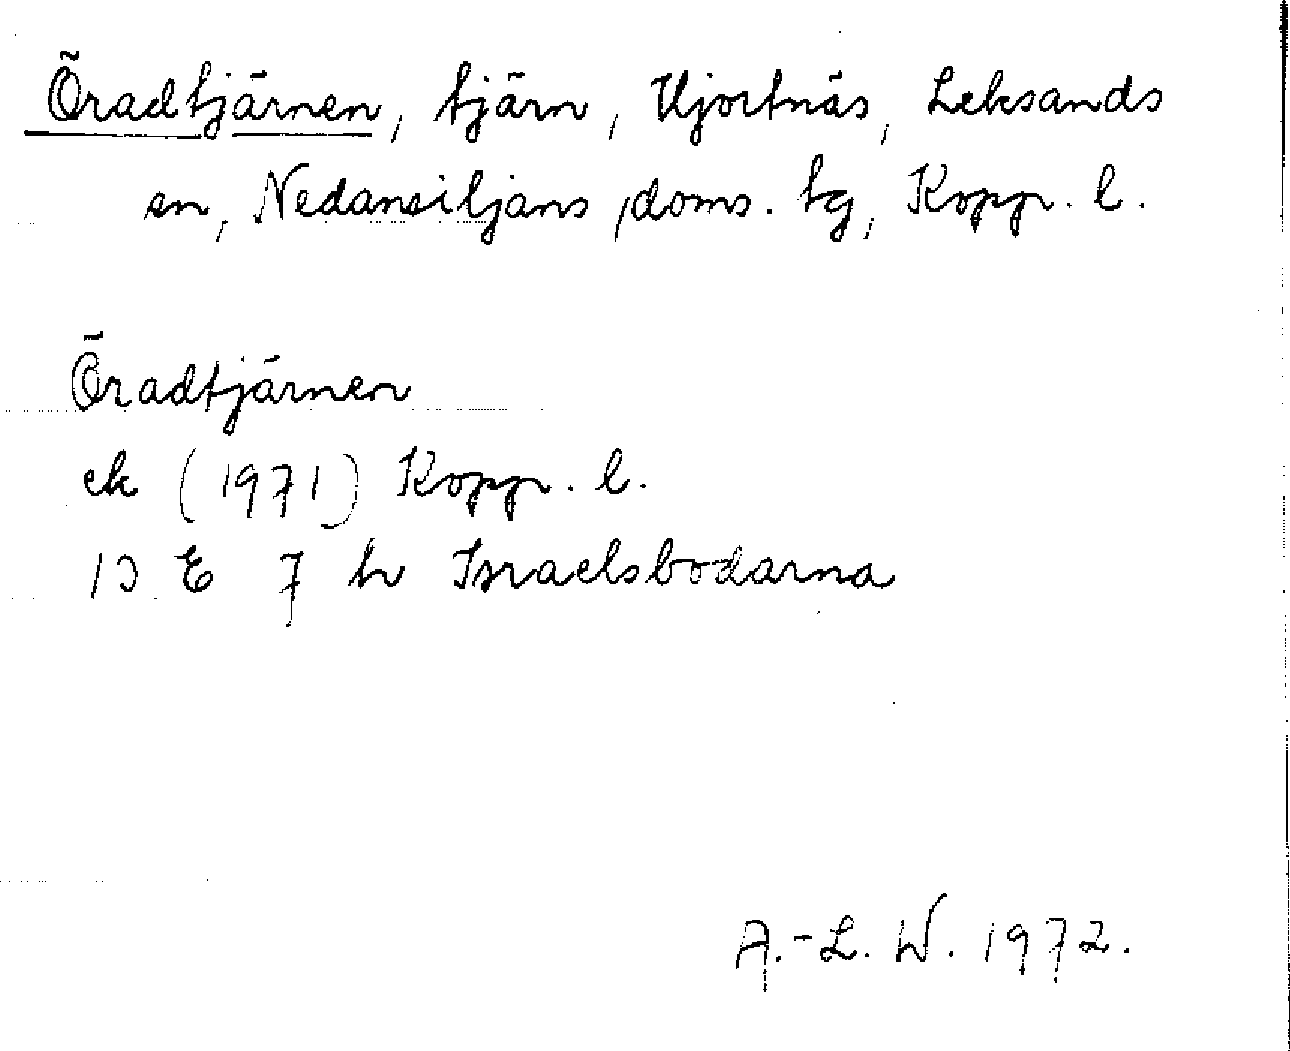 Öradtjärnen, tjärn, Hjortnäs, Leksands
sn, Nedansiljans doms. tg, Kopp. l.
Öradtjärnen
ek (1971) Kopp. l.
13 E 7 h Israelsbodarna
A.-L. W. 1972.